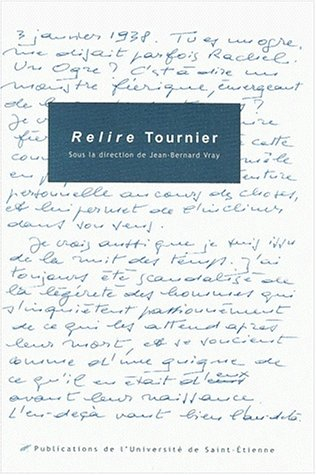 3 janvier 1938. Tu es un ogre,
me disait parfois Rachel.
Un Ogre ? C'est à dire un
monstre féerique, émergeant
Relire Tournier
Sous la direction de Jean-Bernard Vray
cette
personnelle au cours des choses,
et lui permet de l'incliner
dans son sens.
Je crois aussi que je suis issu
de la nuit des temps. J'ai
toujours été scandalisé de
la légèreté des hommes qui
s'inquiètent passionnément
de ce qui les attend après
leur mort et se soucient
comme d'une guigne de
ce qu'il en était d'eux
avant leur naissance.
L'en-deçà vaut bien l'au-delà
Publications de l'Université de Saint-Étienne